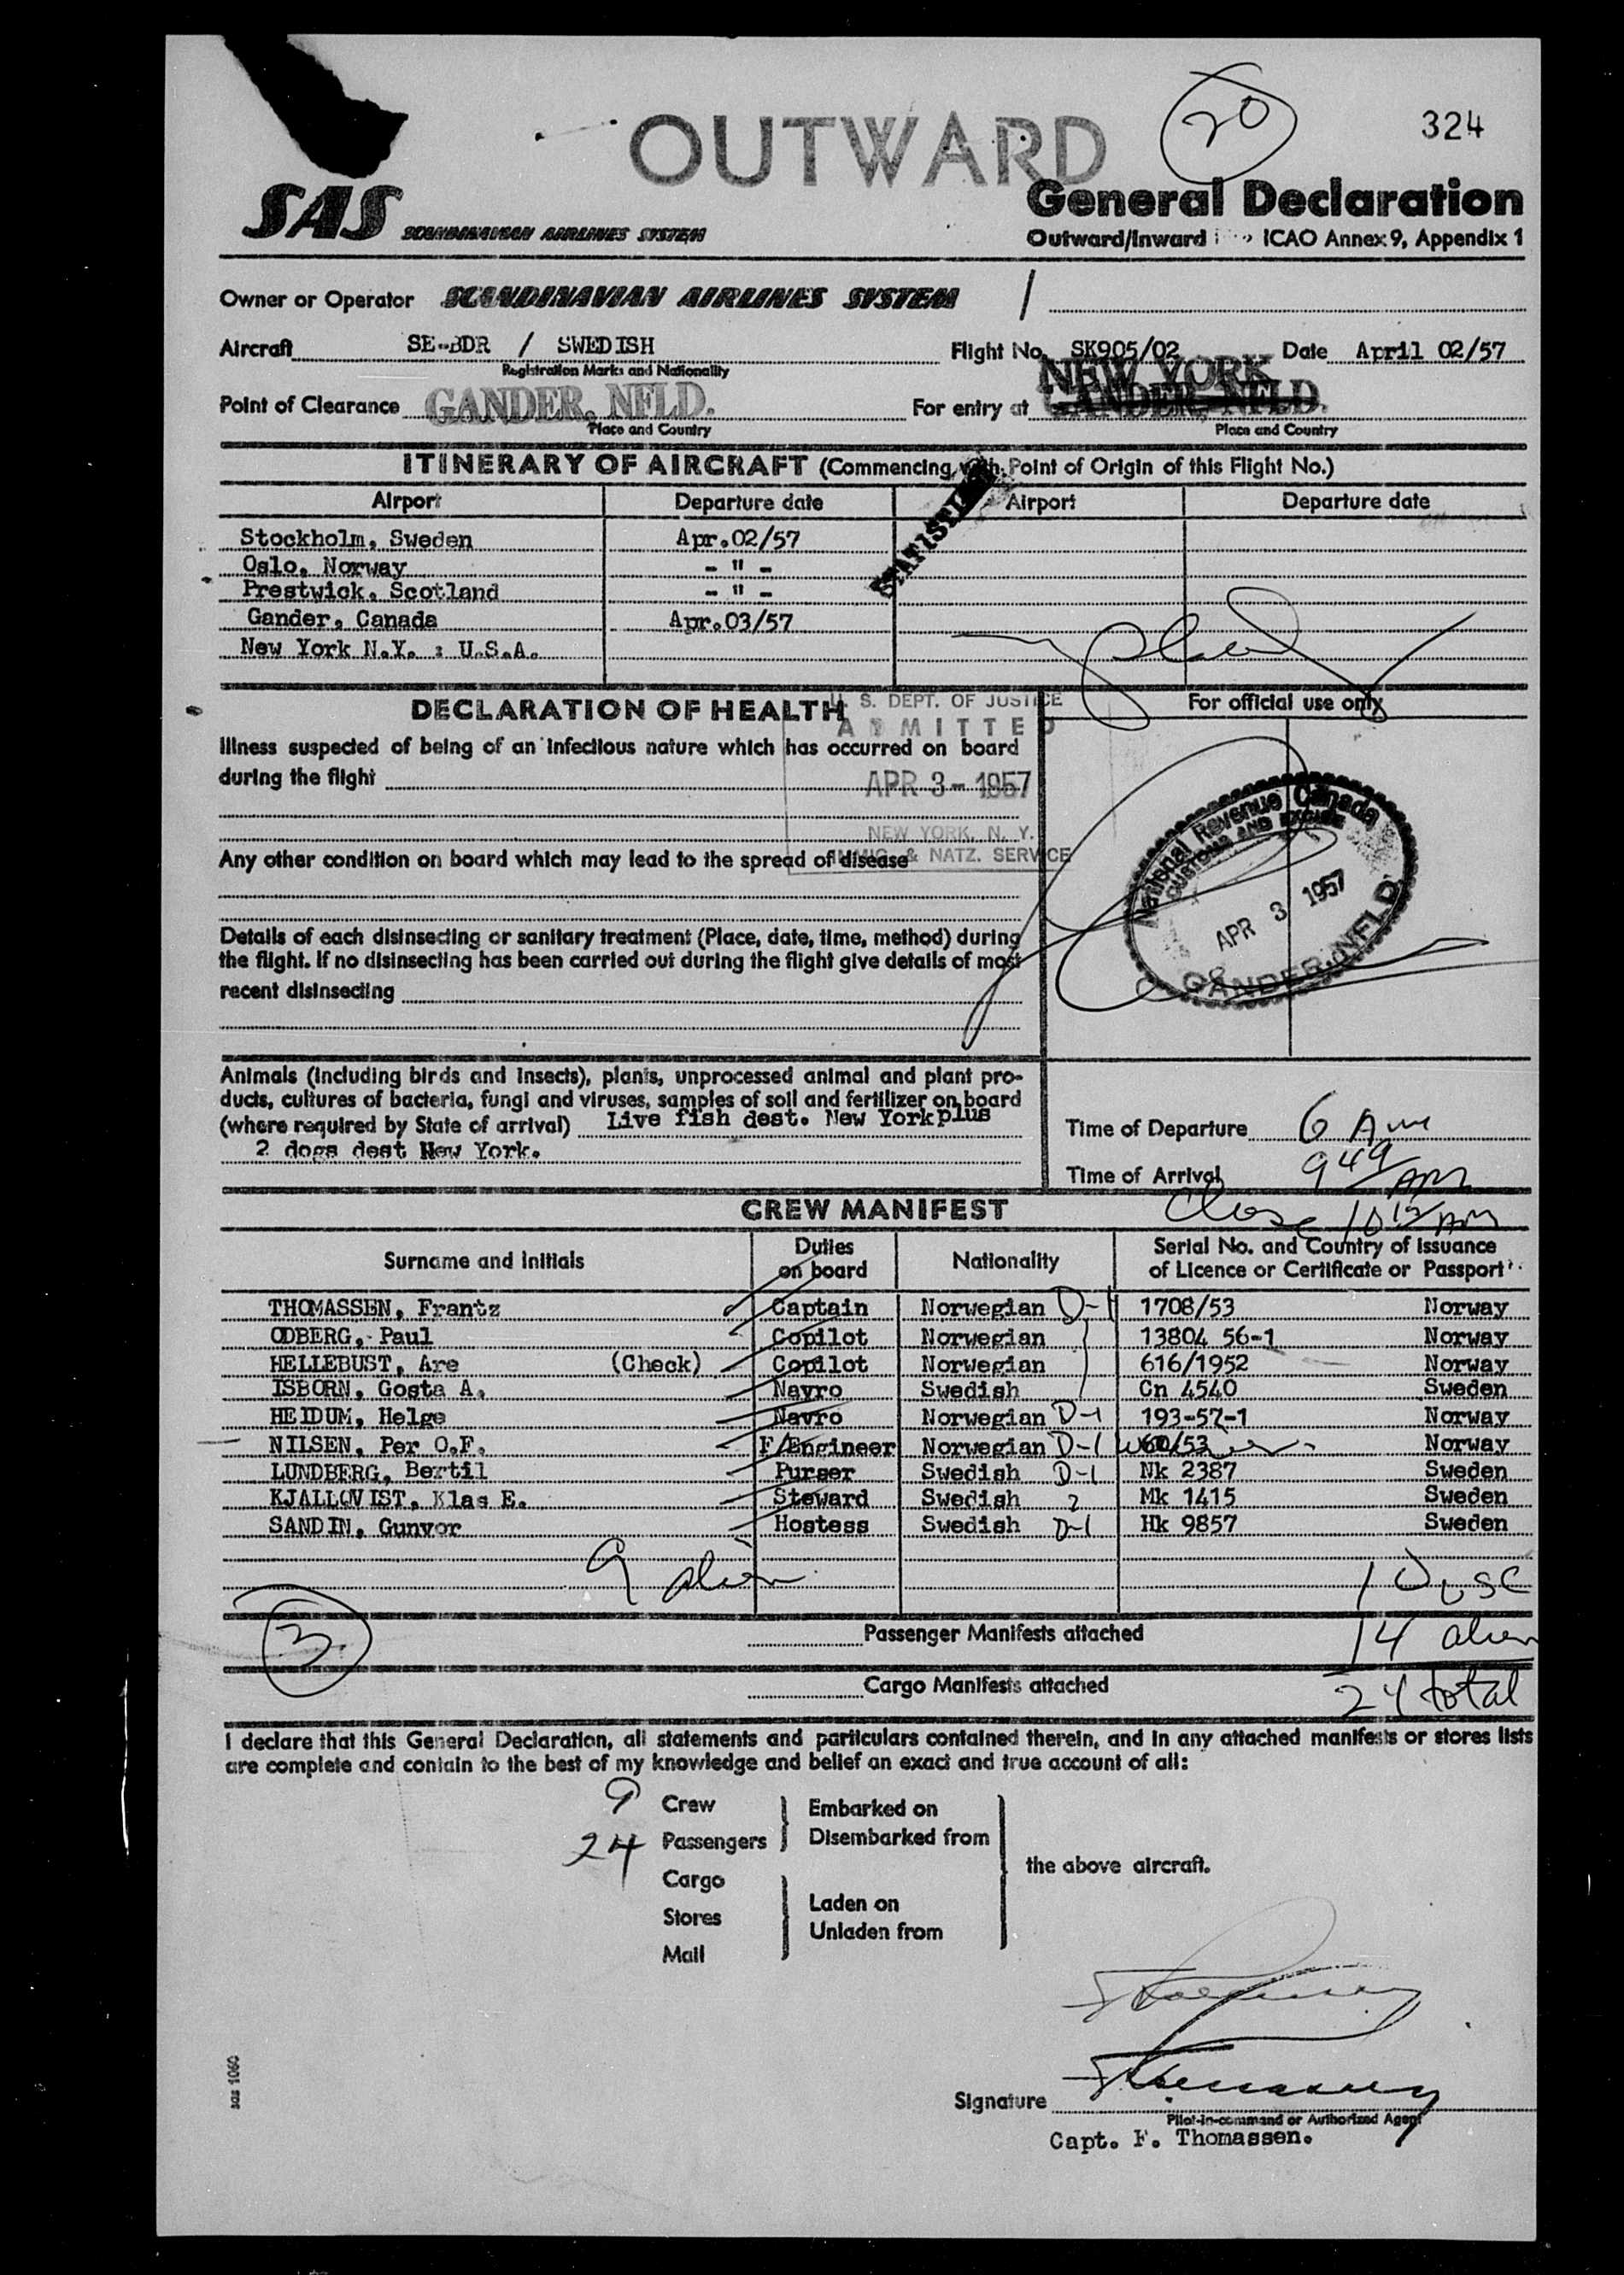 20
324
OUTWARD
SAS SCANDINAVIAN AIRLINES SYSTEM
General Declaration
Outward/Inward ICAO Annex 9, Appendix 1
Owner or Operator SCANDINAVIAN AIRLINES SYSTEM /
Aircraft SE-BDR / SWEDISH Flight No. SK905/02 Date April 02/57
Registration Marks and Nationality
NEW YORK
Point of Clearance GANDER, NFLD. For entry at GANDER, NFLD.
Place and Country Place and Country
ITINERARY OF AIRCRAFT (Commencing with Point of Origin of this Flight No.)
Airport Departure date Airport Departure date
Stockholm, Sweden Apr.02/57
Oslo, Norway - " -
Prestwick, Scotland - " -
Gander, Canada Apr.03/57
New York N.Y. : U.S.A.
DECLARATION OF HEALTH
U. S. DEPT. OF JUSTICE
ADMITTED
APR 3 - 1957
NEW YORK, N. Y.
IMMIG. & NATZ. SERVICE
For official use only
Illness suspected of being of an infectious nature which has occurred on board
during the flight
Any other condition on board which may lead to the spread of disease
Details of each disinsecting or sanitary treatment (Place, date, time, method) during
the flight. If no disinsecting has been carried out during the flight give details of most
recent disinsecting
National Revenue Canada
CUSTOMS AND EXCISE
APR 3 1957
GANDER, NFLD
Animals (including birds and insects), plants, unprocessed animal and plant pro-
ducts, cultures of bacteria, fungi and viruses, samples of soil and fertilizer on board
(where required by State of arrival) Live fish dest. New York plus
2 dogs dest New York.
Time of Departure 6 Am
Time of Arrival 9 49 AM
Close 10 15 AM
CREW MANIFEST
Surname and Initials Duties on board Nationality Serial No. and Country of Issuance of Licence or Certificate or Passport
THOMASSEN, Frantz Captain Norwegian D-1 1708/53 Norway
ODBERG, Paul Copilot Norwegian 13804 56-1 Norway
HELLEBUST, Are (Check) Copilot Norwegian 616/1952 Norway
ISBORN, Gosta A. Navro Swedish Cn 4540 Sweden
HEIDUM, Helge Navro Norwegian D-1 193-57-1 Norway
NILSEN, Per O.F. F/Engineer Norwegian D-1 60/53 Norway
LUNDBERG, Bertil Purser Swedish D-1 Nk 2387 Sweden
KJALLQVIST, Klas E. Steward Swedish 2 Mk 1415 Sweden
SANDIN, Gunvor Hostess Swedish D-1 Hk 9857 Sweden
9 alien
3
Passenger Manifests attached 14 alien
Cargo Manifests attached 24 total
I declare that this General Declaration, all statements and particulars contained therein, and in any attached manifests or stores lists
are complete and contain to the best of my knowledge and belief an exact and true account of all:
9 Crew Embarked on
24 Passengers Disembarked from
the above aircraft.
Cargo
Stores Laden on
Unladen from
Mail
sas 1060
Signature
Pilot-in-command or Authorized Agent
Capt. F. Thomassen.